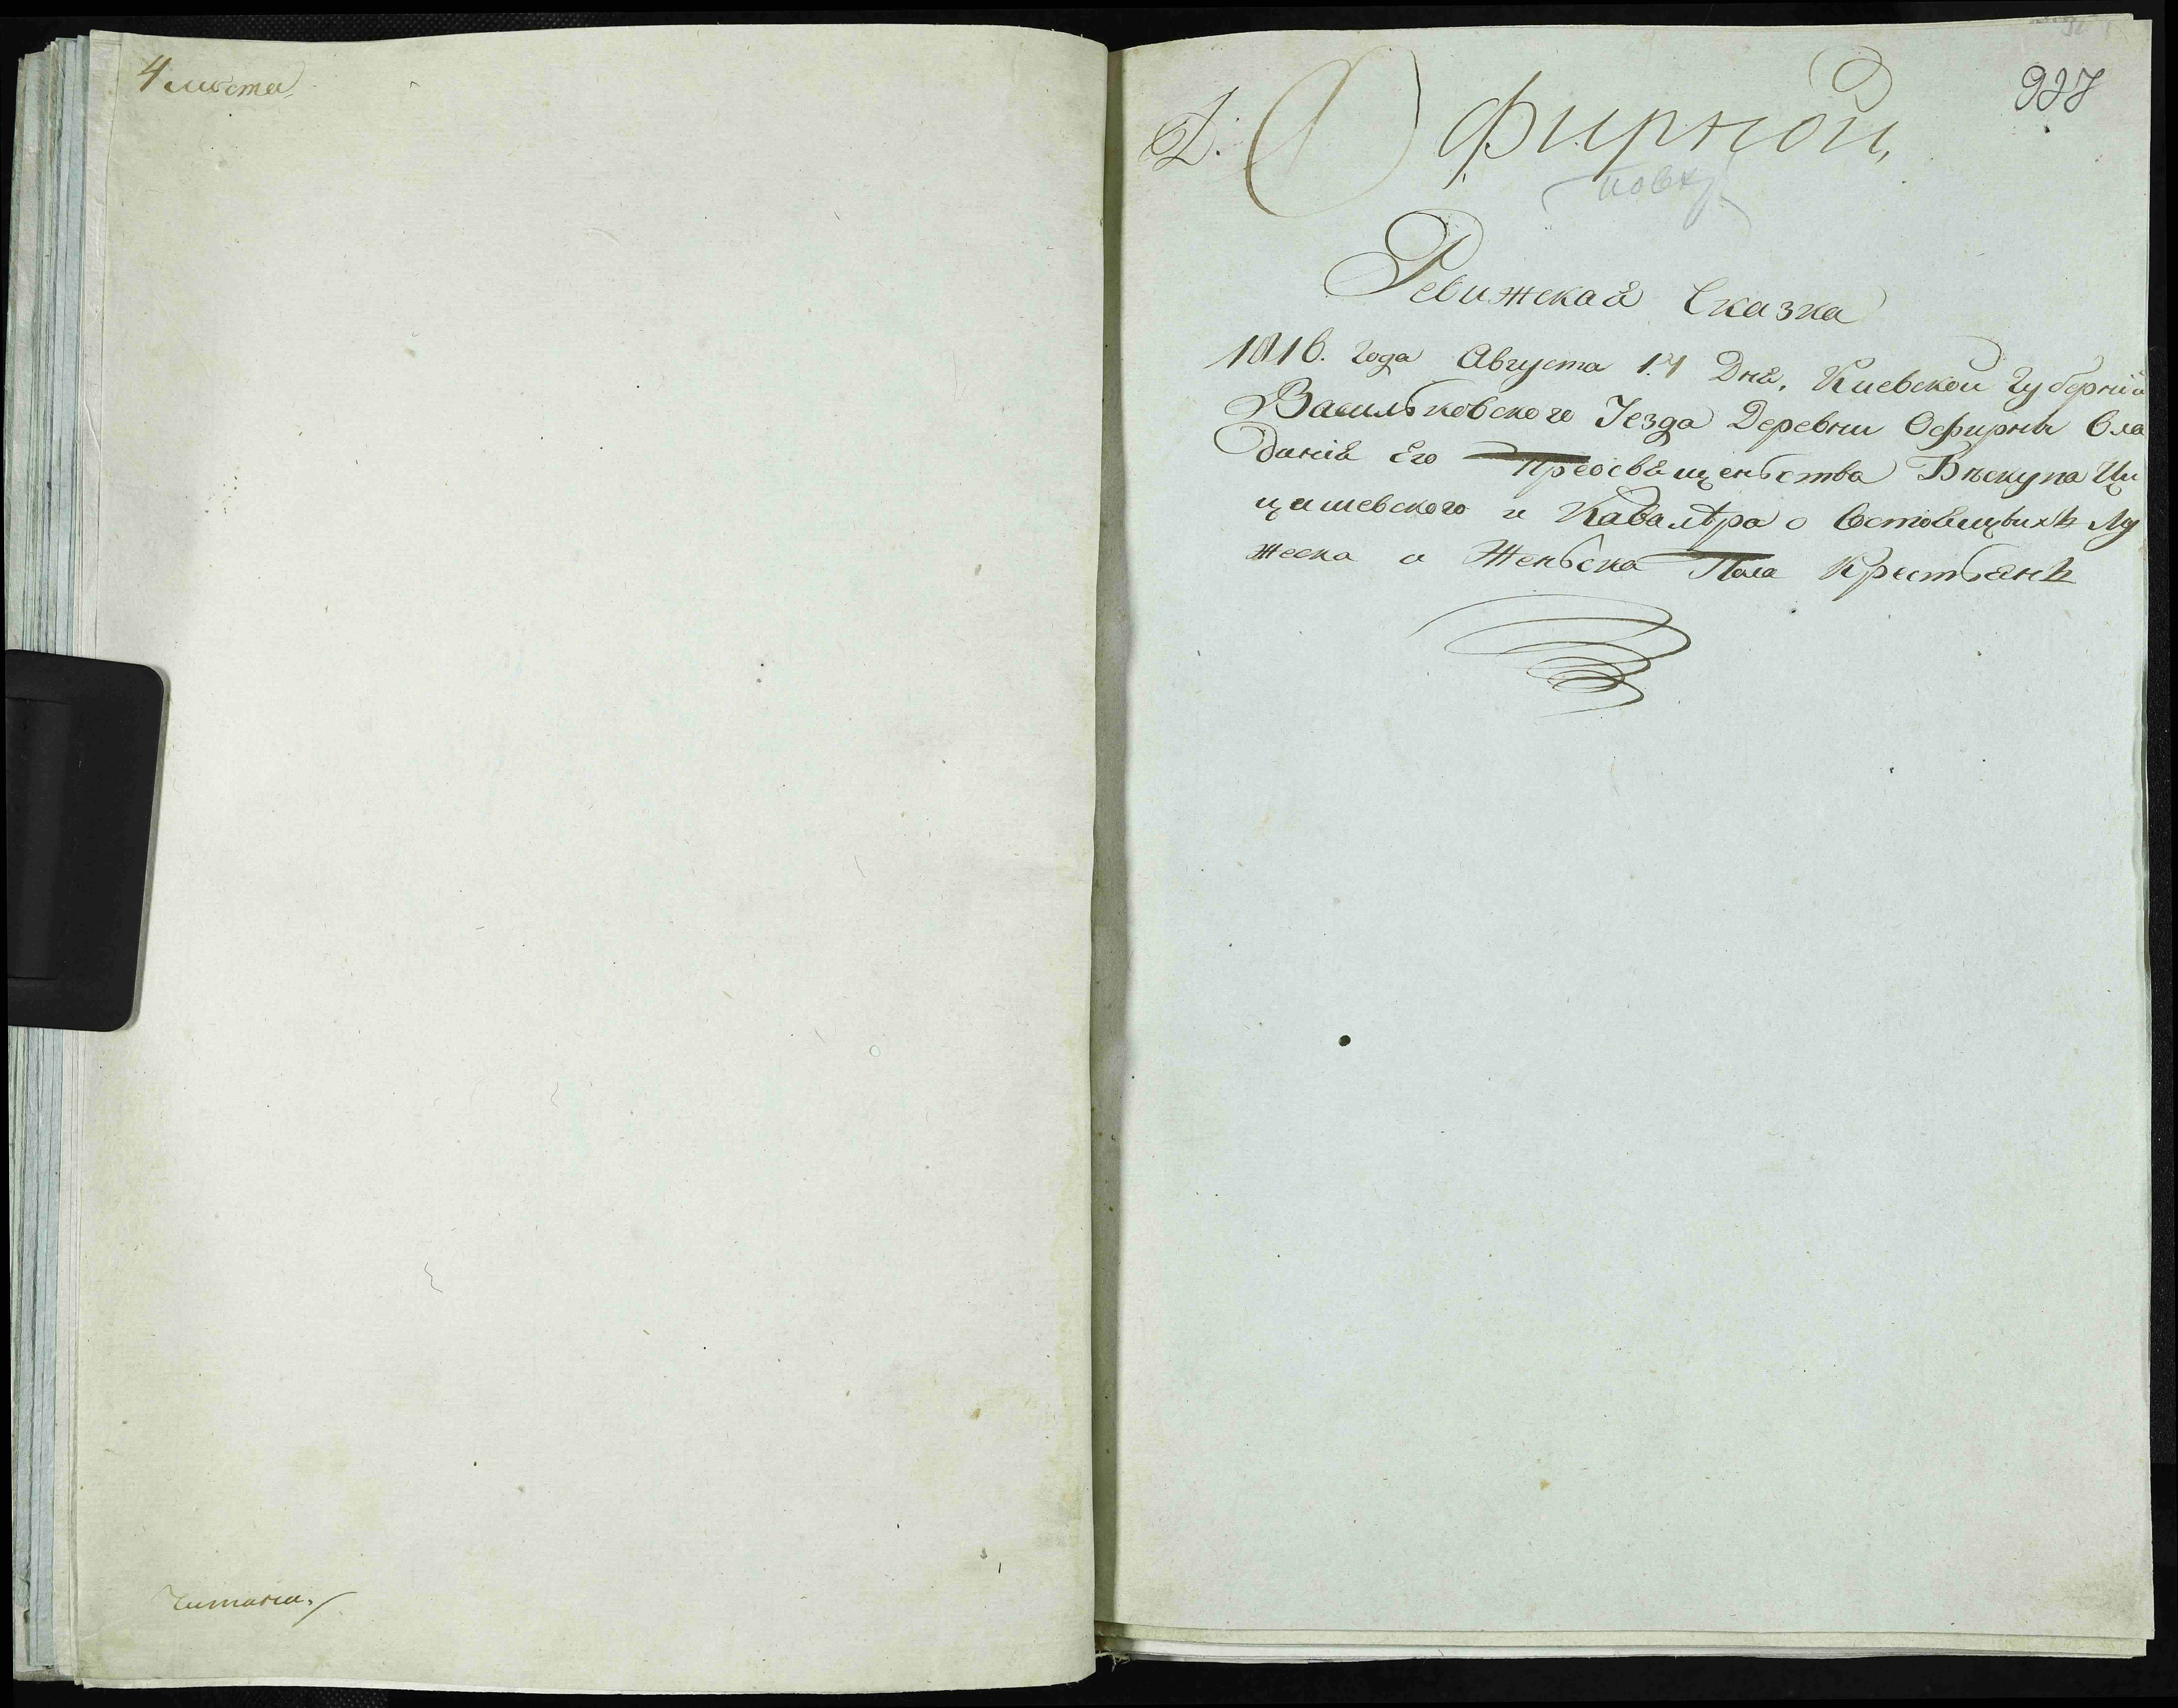 4 листа
Читана.
Д. Офирной,
937
Ревижская Сказка
1816. года Августа 14 Дня, Киевской Губернiи
Васильковского Уезда Деревни Офирны Вла
данiя Его Преосвященьства Бѣскупа Ци
цишевского и Кавалѣра о Состоящыхъ Му
жеска и Женьска Пола Крестьянъ